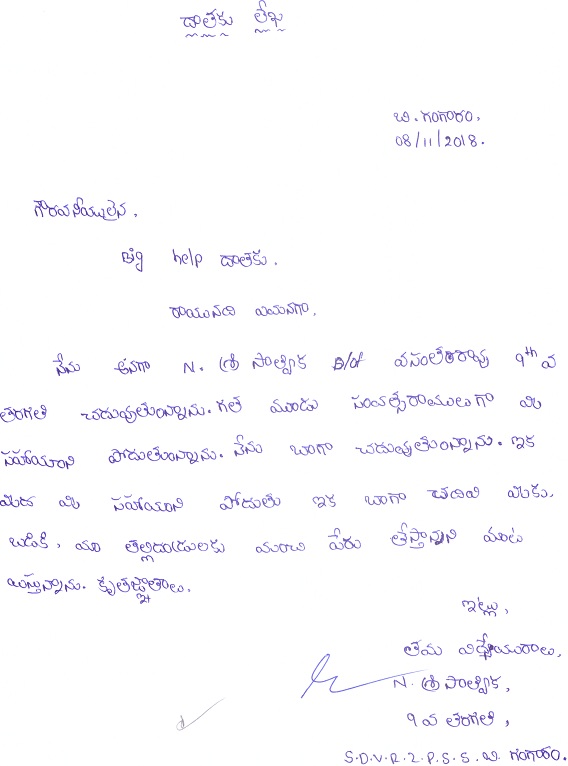 దాతకు లేఖ
బి. గంగారం,
08/11/2018.
గౌరవనీయులైన,
బిగ్ help దాతకు.
రాయునది ఏమనగా,
నేను అనగా N. శ్రీ సాత్విక D/of వసంతరావు 9th వ
తరగతి చదువుతున్నాను. గత మూడు సంవత్సరాములుగా మీ
సహాయాని పొదుతున్నాను. నేను బాగా చదువుతున్నాను. ఇక
మీద మీ సహాయాని పొదుతు ఇక బాగా చదివి మీకు.
బడికి, మా తల్లిదండ్రులకు మంచి పేరు తేస్తానని మాట
ఇస్తున్నాను. కృతజ్ఞాతాలు.
ఇట్లు,
తమ విధేయురాలు,
N. శ్రీ సాత్విక,
9 వ తరగతి,
S.D.V.R.Z.P.S.S. బి. గంగారం.